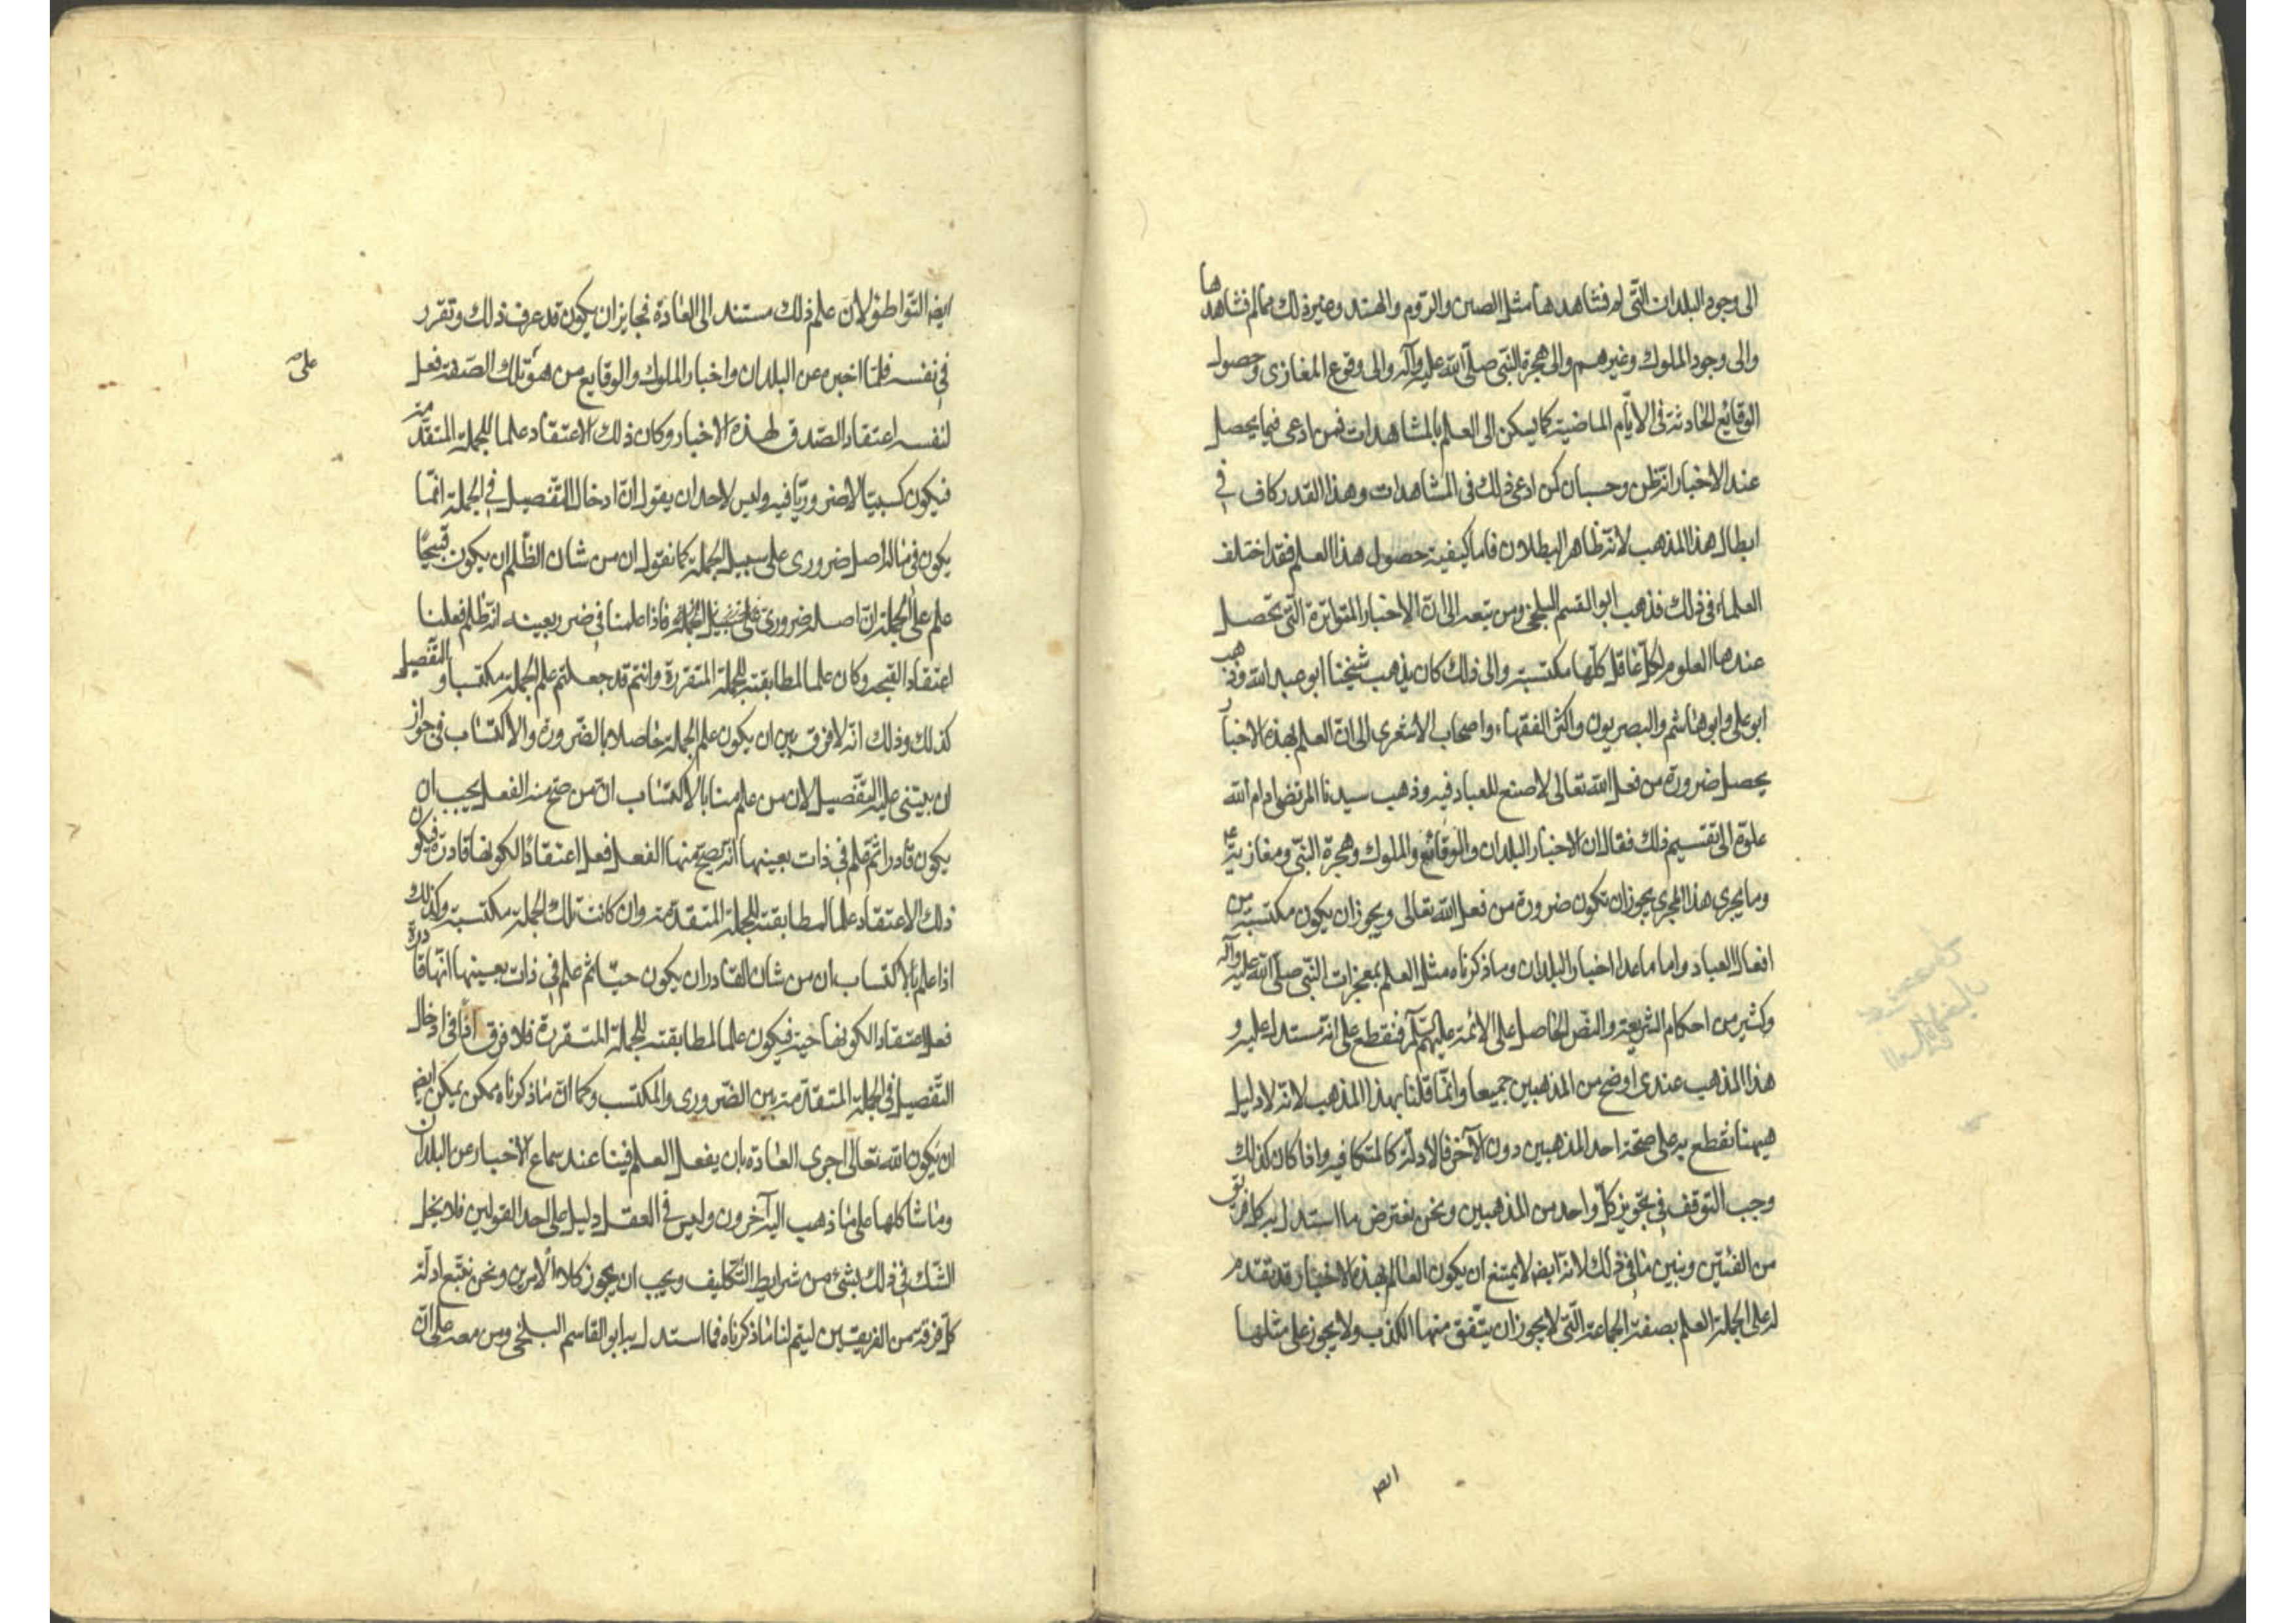 الى وجود البلدان التّى لم نشاهدها مثل الصين والرّوم والهند وغير ذلك ممّا لم نشاهدها
والى وجود الملوك وغيرهم والى هجرة النّبى صلّى الله عليه وآله والى وقوع المغازى وحصول
الوقائع الحادثة فى الايّام الماضية كما يسكن الى العلم بالمشاهدات فمن ادعى فيما يحصل
عند الاخبار انّه ظن وحسبان كمن ادعى ذلك فى المشاهدات وهذا القدر كاف فى
ابطال هذا المذهب لانّه ظاهر البطلان فاما كيفية حصول هذا العلم فقد اختلف
العلماء فى ذلك فذهب ابو القسم البلخى ومن تبعه الى انّ الاخبار المتواترة التّى تحصل
عندها العلوم لكلّ عاقل كلّها مكتسبة والى ذلك كان يذهب شيخنا ابو عبد الله وذهب
ابو على وابو هاشم والبصريون واكثر الفقهاء واصحاب الاشعرى الى انّ العلم بهذه الاخبار
يحصل ضرورة من فعل الله تعالى لا صنع للعباد فيه وذهب سيدنا المرتضى ادام الله
علوّه الى تقسيم ذلك فقال ان الاخبار البلدان والوقائع والملوك وهجرة النّبى ومغازيه
وما يجرى هذا المجرى يجوز ان تكون ضرورة من فعل الله تعالى ويجوز ان يكون مكتسبة من
افعال العباد واما ما عدا اخبار البلدان وما ذكرناه مثل العلم بمعجزات النّبى صلّى الله عليه وآله
وكثير من احكام الشريعة والنّص الحاصل على الائمة عليهم فنقطع على انّه مستدل عليه و
هذا المذهب عندى اوضح من المذهبين جميعا وانّما قلنا بهذا المذهب لانّه لا دليل
هيهنا نقطع به على صحّة احد المذهبين دون الآخر فالادلّة كالمتكافيه واذا كان كذلك
وجب التوقف فى تجويز كلّ واحد من المذهبين ونحن نعترض ما استدل به كل فريق
من الفئتين ونبين ما فى ذلك لانّه ايض لا يمتنع ان يكون العالم بهذه الاخبار قد تقدم
له على الجملة العلم بصفة الجماعة التّى لا يجوز ان يتّفق منها الكذب ولا يجوز على مثلها
ايض
ايض التّواطؤ لانّ علم ذلك مستند الى العادة فجايز ان يكون قد عرف ذلك وتقرر
فى نفسه فلمّا اخبره عن البلدان واخبار الملوك والوقايع من هو تلك الصّفة فعل
على
لنفسه اعتقاد الصّدق لهذه الاخبار وكان ذلك الاعتقاد علما للجملة المتقدّمة
فيكون كسبيّا لا ضروريّا فيه وليس لاحد ان يقول انّ ادخال التّفصيل فى الجملة انّما
يكون فيما له اصل ضرورى على سبيل الجملة كما نقول ان من شان الظّلم ان يكون قبيحًا
علم على الجملة انّ اصله ضرورى على سبيل الجملة فاذا علمنا فى ضرر بعينه انّه ظلم فعلنا
اعتقاد القبحه وكان علما لمطابقته للجملة المتقررة وانتم قد جعلتم علم الجملة مكتسبا والتّفصيل
كذلك وذلك انّه لا فرق بين ان يكون علم الجملة حاصلا بالضّرورة والاكتساب فى جواز
ان يبتنى عليه التّفصيل لان من علم منا بالاكتساب انّ من صحّ منه الفعل يجب ان
يكون قادرا ثم علم فى ذات بعينها انّه يصحّ منها الفعل فعل اعتقادًا لكونها قادرة فيكون
ذلك الاعتقاد علما لمطابقته للجملة المتقدّمة وان كانت تلك الجملة مكتسبة وكذلك
اذا علم بالاكتساب ان من شان القادر ان يكون حيّا ثم علم فى ذات بعينها انّها قادرة
فعل اعتقاد الكونها حيّة فيكون علما لمطابقته للجملة المتقررة فلا فرق اذًا فى ادخال
التّفصيل فى الجملة المتقدّمة بين الضّرورى والمكتسب وكما انّ ما ذكرناه ممكن يمكن ايض
ان يكون الله تعالى اجرى العادة بان يفعل العلم فينا عند سماع الاخبار عن البلدان
وما شاكلها على ما ذهب اليه آخرون وليس فى العقل دليل على احد القولين فلا يخل
الشّك فى ذلك بشئ من شرايط التّكليف ويجب ان يجوز كلا الامرين ونحن نتبّع ادلّة
كلّ فرقة من الفريقين ليتم لنا ما ذكرناه فما استدل به ابو القاسم البلخى ومن معه على انّ